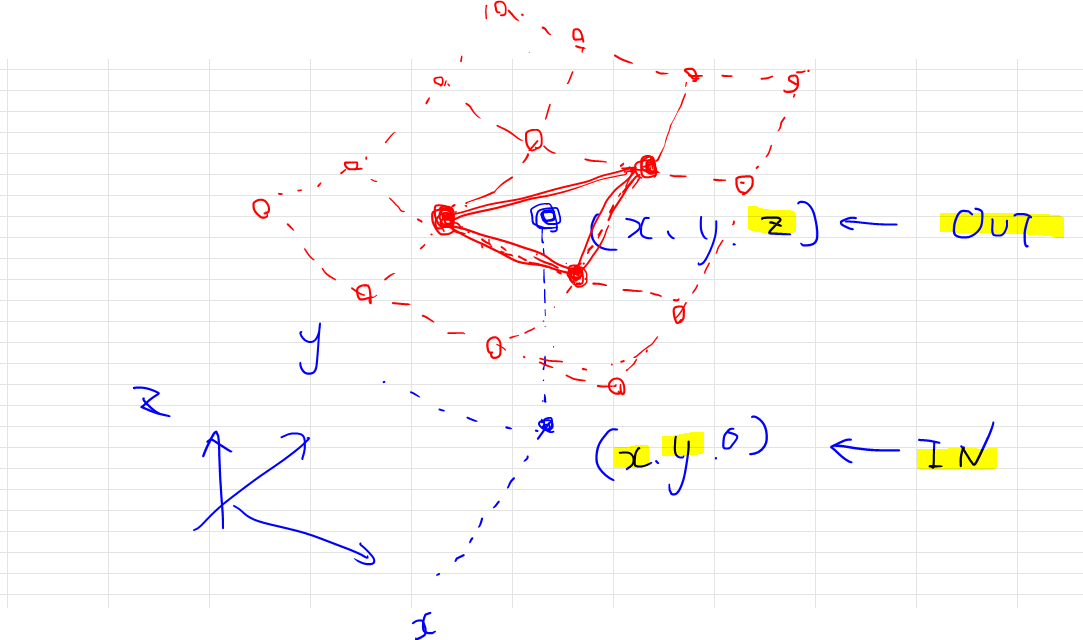 (x, y, z) ← OUT
y
z
(x, y, 0) ← IN
x